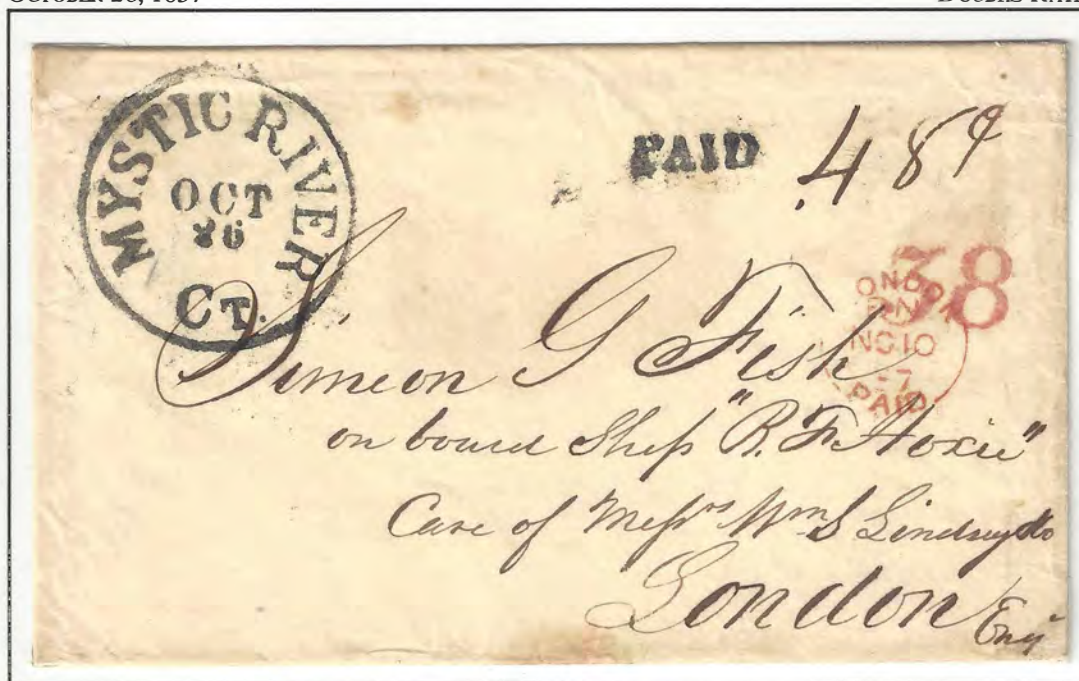 MYSTIC RIVER
OCT
26
CT.
PAID
48¢
38
LONDON
NO 10
57
PAID
Simeon G Fish
on board Ship "R. F. Hoxie"
Care of Messrs Wm S Lindsay & Co
London
Eng